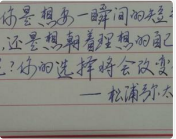 你是想要一瞬间的
还是想朝着理想的自己
?你的选择将会改变
—松浦弥太